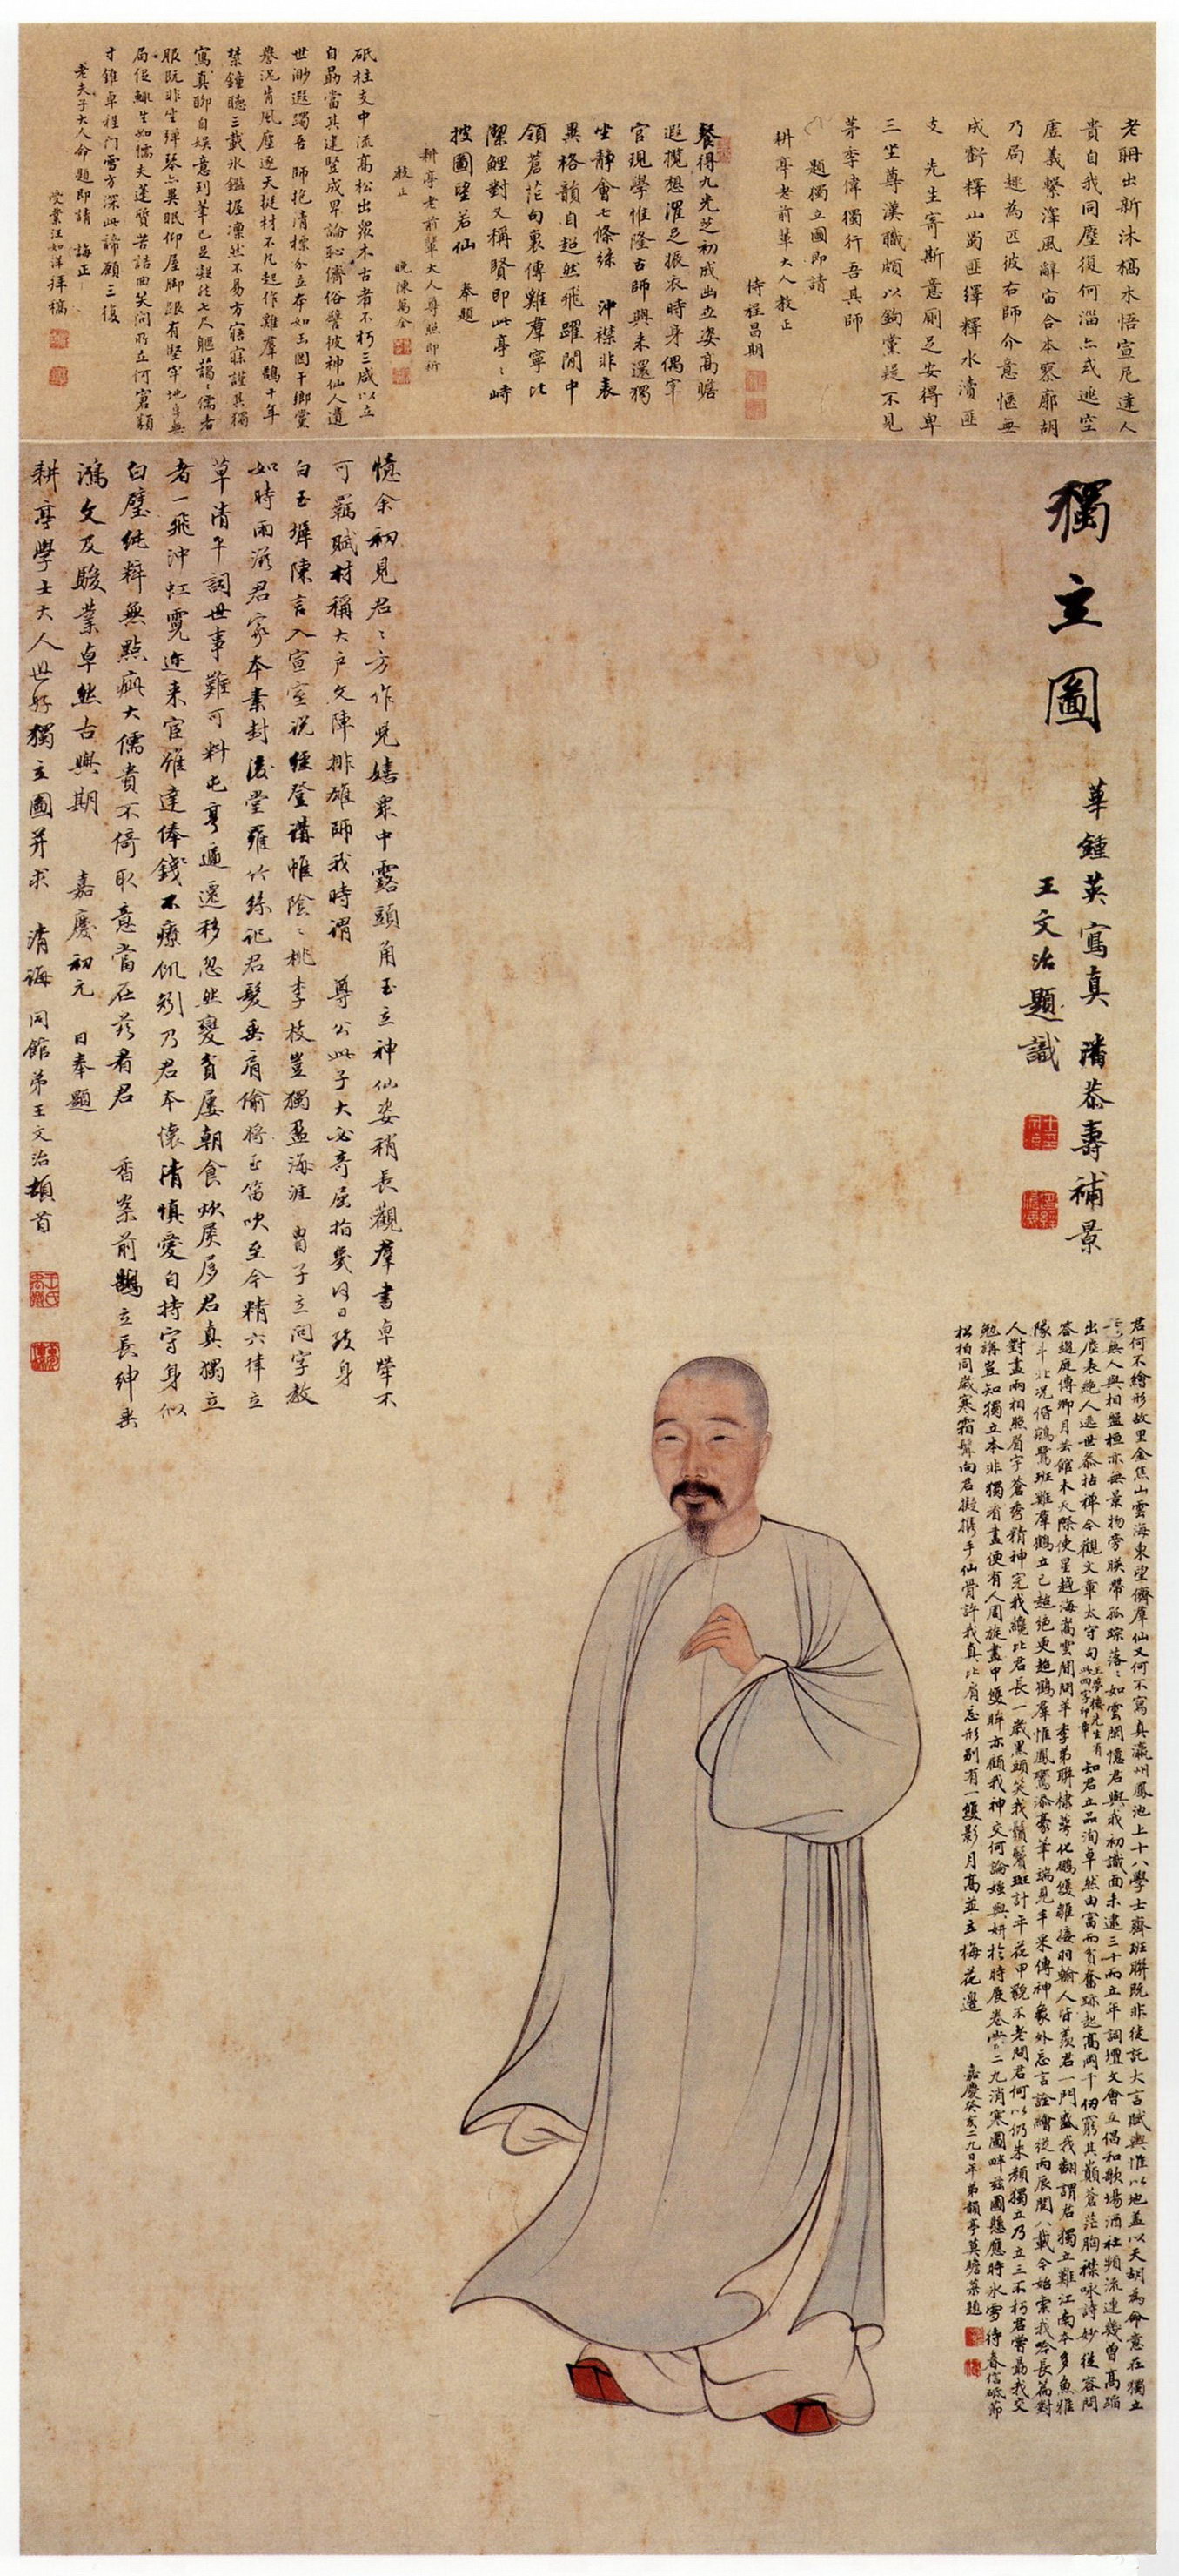 老聃出新沐槁木悟宣尼達人
貴自我同塵復何淄亦或逃空
虛義繫澤風辭宙合本寥廓胡
乃局趣為匹彼右師介意愜無
成斲擇山罻匪繹釋水瀆匪
支　先生寄斯意厠足安得卑
三坐尊漢職頗以鉤黨疑不見
茅季偉獨行吾其師
題獨立圖即請
耕亭老前輩大人教正
侍程昌期
餐得九光芝初成出立姿高瞻
遐攬想濯足振衣時身偶宰
官現學惟隆古師興來還獨
坐靜會七條絲　沖襟非表
異格韻自超然飛躍閒中
領蒼茫句裏傳雞羣寧比
潔鯉對又稱賢即此亭亭峙
披圖望若仙　奉題
耕亭老前輩大人尊照即祈
教正
晚陳萬全
砥柱支中流高松出眾木古者不朽三咸以立
自勗當其建豎成早論恥儕俗譬彼神仙人遺
世渺遐躅吾　師抱清標介立本如玉岡干鄉黨
譽況肯風塵逐天挺材不凡起作雞羣鵠十年
禁鐘聽三載冰鑑握凛然不易方寤寐謹其獨
寫真聊自娛意到筆已足凝然七尺軀藹藹儒者
服既非坐彈琴亦異眠仰屋脚跟有堅牢地步無
局促鯫生如懦夫蓬質苦詰曲笑問所立何窘類
寸錐卓程門雪方深此諦願三復
老夫子大人命題即請　誨正
受業汪如洋拜稿
獨立圖
華鍾英寫真　潘恭壽補景
王文治題識
憶余初見君君方作兒嬉眾中露頭角玉立神仙姿稍長觀羣書卓犖不
可羈賦材稱大戶文陣排雄師我時謂　尊公此子大必奇屈指幾何日致身
白玉墀陳言入宣室說經登講帷陰陰桃李枝豈獨盈海涯　胄子立問字教
如時雨滋君家本素封後堂羅竹絲記君髮垂肩偷將玉笛吹至今精六律立
草清平詞世事難可料屯亨遞遷移忽然變貧屢朝食炊扊扅君真獨立
者一飛沖虹霓邇來宦雖達俸錢不療飢矧乃君本懷清慎愛自持守身似
白璧純粹無點疵大儒貴不倚取意當在茲看君　香案前鵠立長紳垂
鴻文及駿業卓然古與期　嘉慶初元　日奉題
耕亭學士大人世好獨立圖并求　清誨　同館弟王文治頓首
君何不繪形故里金焦山雲海東望儕羣仙又何不寫真瀛州鳳池上十八學士齊班聯既非徒託大言賦與惟以地蓋以天胡為命意在獨立
無人與相盤桓亦無景物旁映帶孤踪落落如雲閒憶君與我初識面未逮三十而立年詞壇文會立倡和歌場酒社頻流連幾曾高蹈
出塵表絕人逃世參枯禪今觀文章太守句王夢樓先生有此四字印章知君立品洵卓然由富而貧奮跡起高岡千仞窮其巔蒼茫胸襟咏詩妙從容問
答趨庭傳卿月芸館木天際使星越海嵩雲間問羊李弟聯棣萼化鵬雙雛接羽翰人皆羨君一門盛我翻謂君獨立難江南本多魚雅
隊斗北況偕鵷鷺班雞羣鶴立已超絕更趨鶴羣惟鳳鸞添豪筆端見丰采傳神象外忘言詮繪從丙辰閱八載今始索我吟長篇對
人對畫兩相照眉宇蒼秀精神完我纔比君長一歲黑頭笑我鬚鬢斑計年花甲貌不老問君何以仍朱顏獨立乃立三不朽君嘗勗我交
勉旃豈知獨立本非獨看畫便有人周旋畫中雙眸亦顧我神交何論媸與妍於時展卷當二九消寒圖畔茲圖懸應時氷雪待春信砥節
松柏同歲寒霜髯向君擬攜手仙骨許我真比肩忘形別有一雙影月高並立梅花邊　嘉慶癸亥二九日年弟韻亭莫瞻菉題